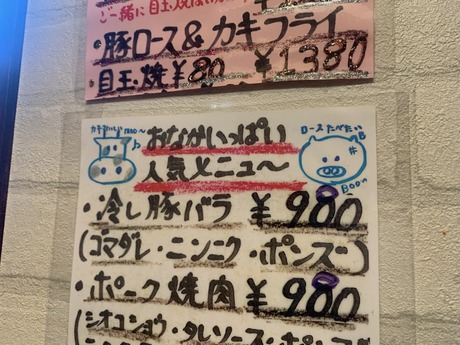 ご一緒に目玉焼は
・豚ロース&カキフライ
・目玉焼¥80 ¥1380
おなかいっぱい
人気メニュ〜
ロースたべたい
Boo〜
・冷し豚バラ ¥980
(ゴマダレ・ニンニク・ポンズ)
・ポーク焼肉 ¥980
(シオコショウ・タレソース・ポン